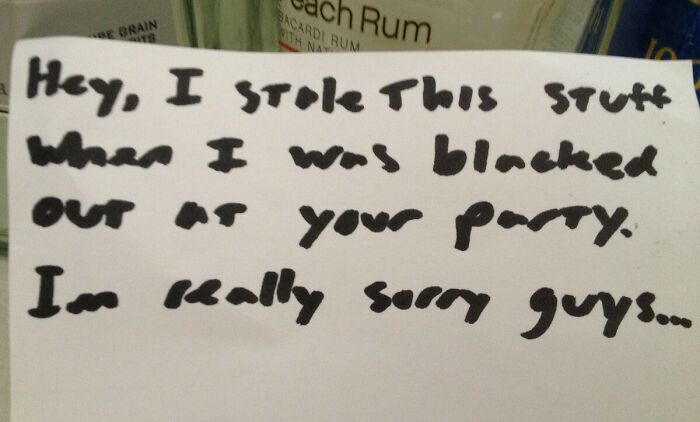 each Rum
BACARDI RUM
WITH NAT
RE GRAIN
ITS
Hey, I stole This stuff
when I was blacked
out at your party.
Im really sorry guys...